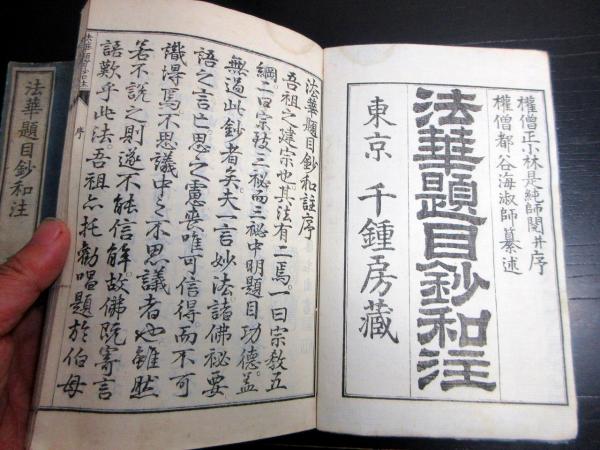 權僧正小林是純師閲并序
權僧都谷海淑師纂述
法華題目鈔和注
東京 千鍾房藏
法華題目鈔和註序
吾祖之建宗也其法有二焉。一曰宗教五
綱。二曰宗旨三秘而三秘中明題目功德。蓋
無過此鈔者矣夫一言妙法諸佛秘要
語之言亡思之慮喪唯可信得。而不可
識得焉不思議中之不思議者也雖然
若不說之則遂不能信解。故佛既寄言
語歎乎此法吾祖亦托勸唱題於伯母
序
法華題目鈔和注